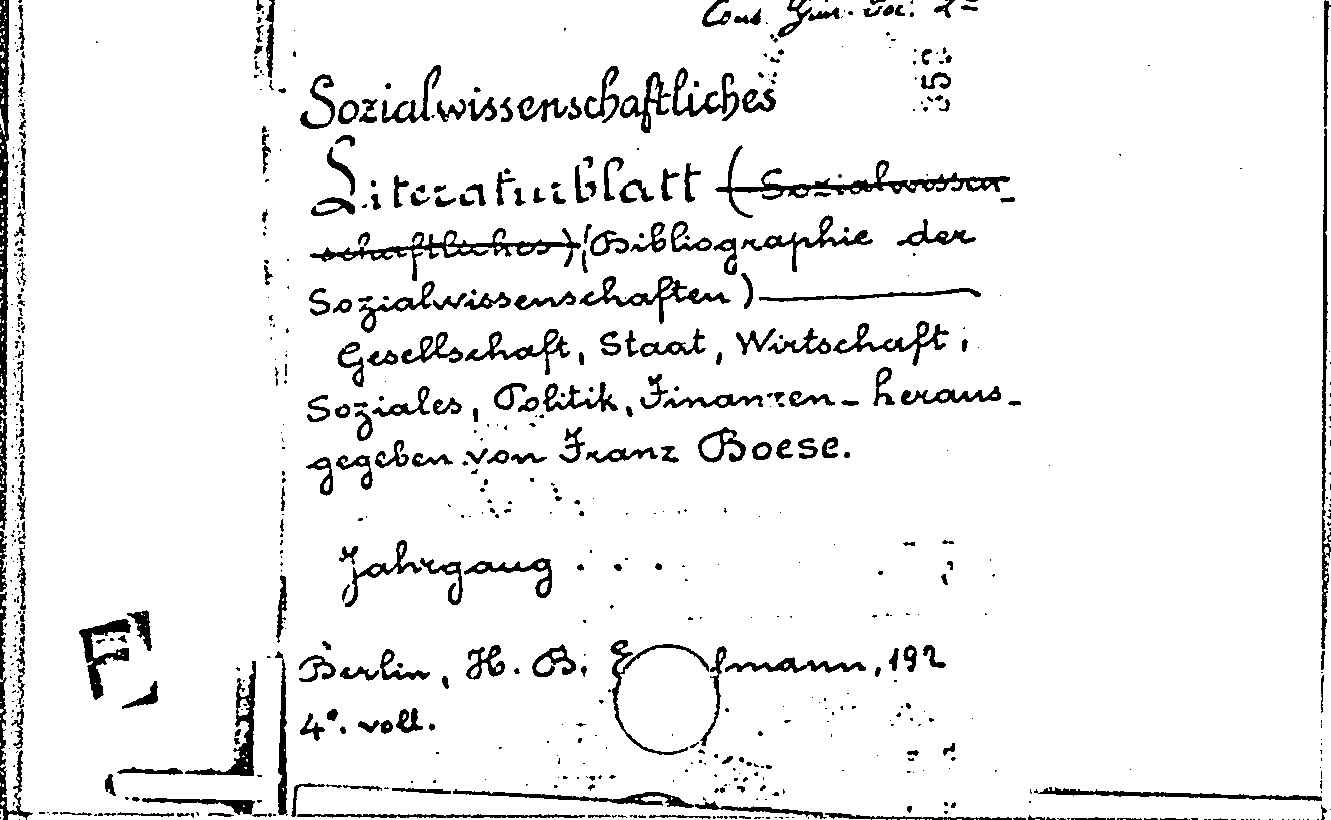 Cons. Gen. Soc. 2
353
Sozialwissenschaftliches
Literaturblatt (Sozialwissen-
schaftliches) (Bibliographie der
Sozialwissenschaften)
Gesellschaft, Staat, Wirtschaft,
Soziales, Politik, Finanzen - heraus-
gegeben von Franz Boese.
Jahrgang . . .
Berlin, H. B. mann, 192
4°. voll.